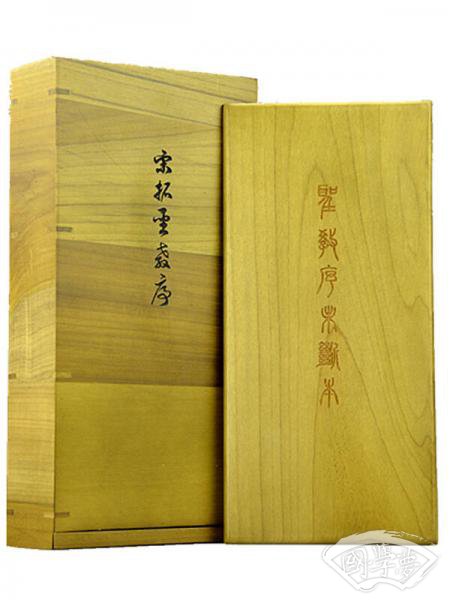 宋拓聖教序
聖教序未斷本
國學夢